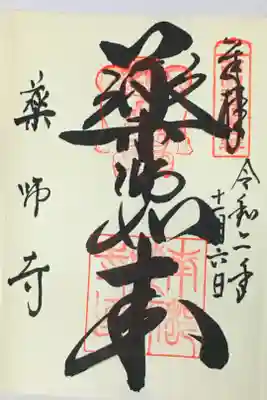 奉拝
令和二年
十一月六日
薬師如来
薬師寺